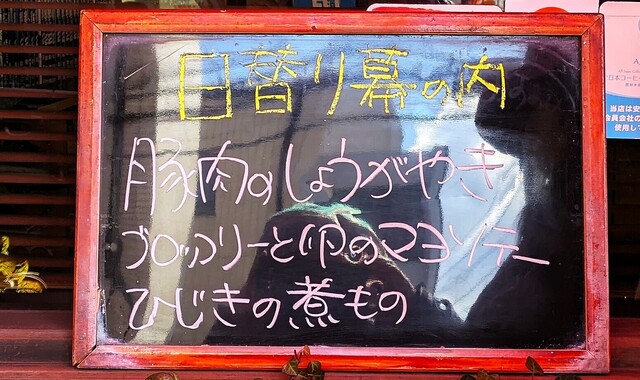 日替り幕の内
豚肉のしょうがやき
ブロッコリーと卵のマヨソテー
ひじきの煮もの
当店は安
会員会社の
使用して